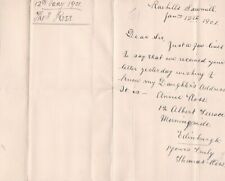 12th Jany 1901
Raehills Sawmill
Jan 12th 1901
Dear Sir,
Just a few lines
to say that we received your
letter yesterday wishing to
know my Daughter's Address
It is —
Annie Ross
12 Albert Terrace
Morningside
Edinburgh
Yours Truly
Thomas Ross